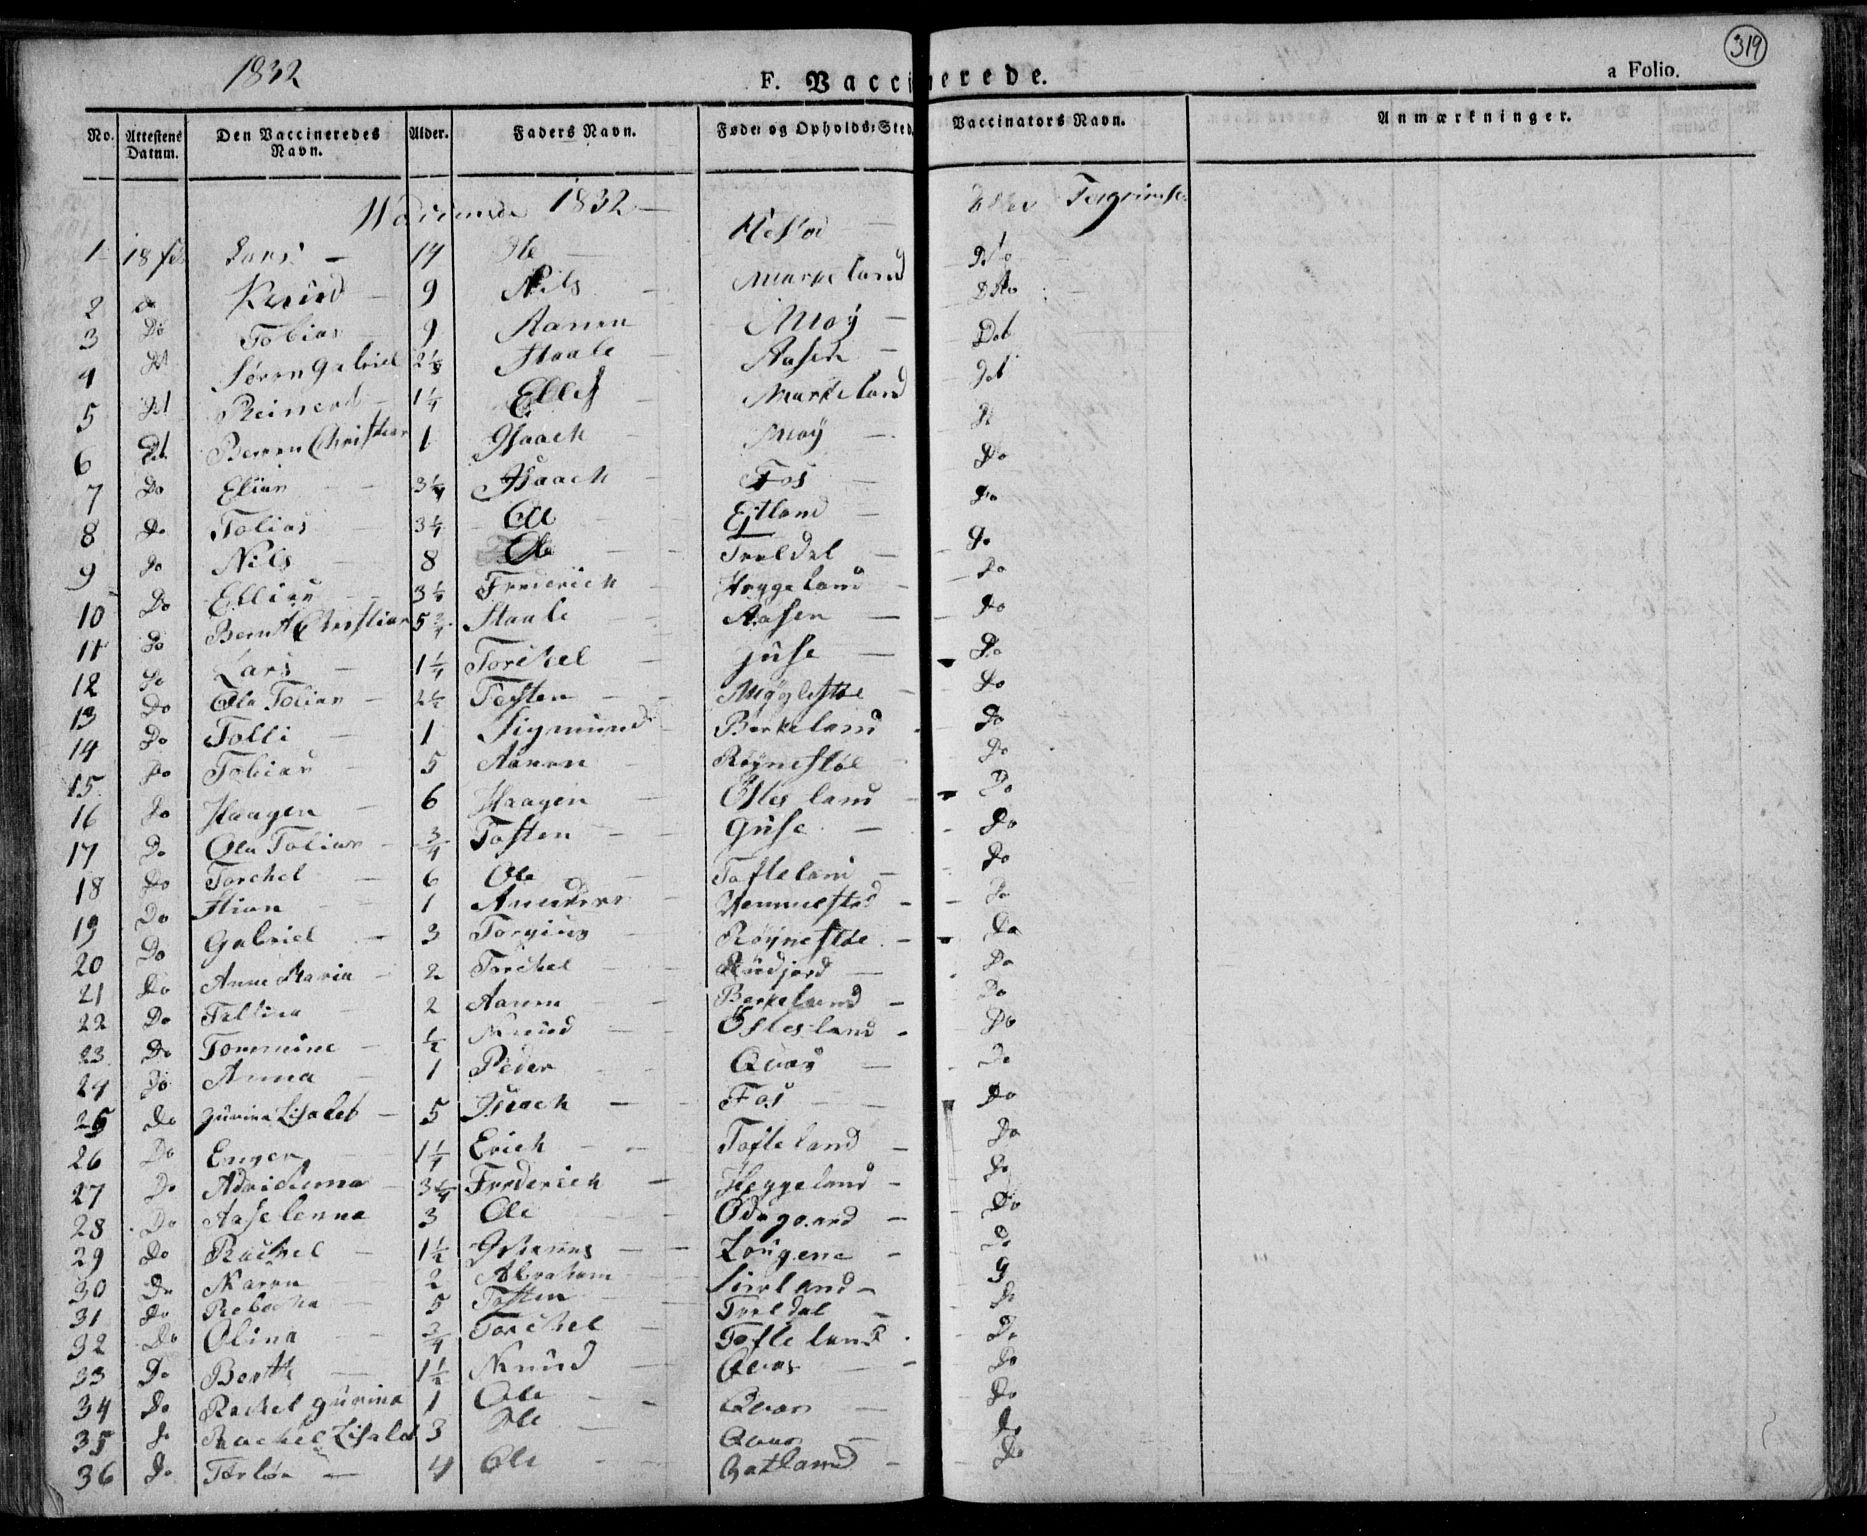 319
1832
F. Vaccinerede.
a Folio.
No. Attestens Datum. Den Vaccineredes Navn. Alder. Faders Navn. Føde: og Opholds: Sted. Vaccinators Navn. Anmærkninger.
1832
1 18 Lars 14 Ole Dto
2 do Knud 9 Nils Markeland Dto
3 Do Tobias 9 Aanen Moÿ Det
4 Dt Søren Gabriel 2 1/3 Staale Aasen Det
5 Dt Reinerd 1 1/4 Ellef Markeland
6 Dt Berent Christian 1 Isaack Moÿ Do
7 Do Elias 3 1/4 Isaach Fos Do
8 Do Tobias 3 1/4 Ole Eitland Do
9 Do Nils 8 Ole Treldal Do
10 Do Ellias Frederich Heggeland Do
11 Do Bernt Christian 5 3/4 Staale Aasen Do
12 Do Lars 1 1/4 Torchel Juse Do
13 Do Ole Tobias 2 1/2 Testen Møglestøe Do
14 Do Tolli 1 Sigmund Berkeland Do
15 Do Tobias 5 Aanen Røÿnestøe Do
16 Do Haagen 6 Haagen Østesland Do
17 Do Ole Tobias 3/4 Tosten Guse Do
18 Do Torchel 6 Ole Tofteland Do
19 Do Stian 1 Anders Vemmestad Do
20 Do Gabriel 3 Torgius Røÿnestøe Do
21 Do Anne Maria 2 Torchel Rudjord Do
22 Do Tallina 2 Aanen Berkeland Do
23 Do Tommine 1/2 Knud Østesland Do
24 Do Anna 1 Peder Qvas Do
25 Do Gurina Lisabet 5 Isach Fos Do
26 Do Enger 1 1/4 Erich Tofteland Do
27 Do 3 1/4 Frederich Heggeland Do
28 Do Aaselenna 3 Ole Ødegaard Do
29 Do Rachel 1 1/2 Johannes Longene Do
30 Do Karen 2 Abraham Sirland
31 Do Rebecka 5 Tosten Treldal
32 Do Olina 3/4 Torchel Tofteland Do
33 Do Berthe 1 1/2 Knud Qvas Do
34 Do Rachel Gurina 1 Ole Qvas Do
35 Do Rachel Lisabet 3 Ole Qvas Do
36 Do 4 Ole Do